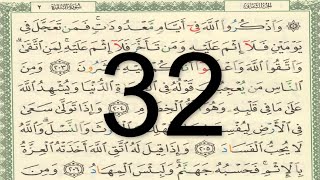 وَاذْكُرُوا اللَّهَ فِي أَيَّامٍ مَعْدُودَاتٍ فَمَنْ تَعَجَّلَ فِي
يَوْمَيْنِ فَلَا إِثْمَ عَلَيْهِ وَمَنْ تَأَخَّرَ فَلَا إِثْمَ عَلَيْهِ لِمَنِ اتَّقَى
وَاتَّقُوا اللَّهَ وَاعْلَمُوا
النَّاسِ مَنْ يُعْجِبُكَ قَوْلُهُ فِي الدُّنْيَا وَيُشْهِدُ اللَّهَ
عَلَى مَا فِي قَلْبِهِ وَهُوَ تَوَلَّى سَعَى
فِي الْأَرْضِ وَالنَّسْلَ وَاللَّهُ
لَا يُحِبُّ الْفَسَادَ ٢٠٥ وَإِذَا قِيلَ لَهُ اتَّقِ اللَّهَ أَخَذَتْهُ الْعِزَّةُ
بِالْإِثْمِ فَحَسْبُهُ جَهَنَّمُ وَلَبِئْسَ الْمِهَادُ ٢٠٦ وَمِنَ
32